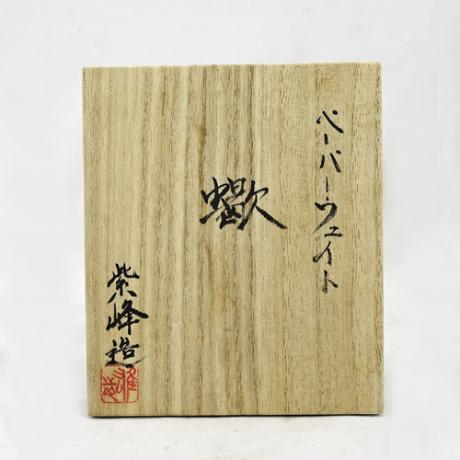 ペーパーウェイト
蠍
紫峰造